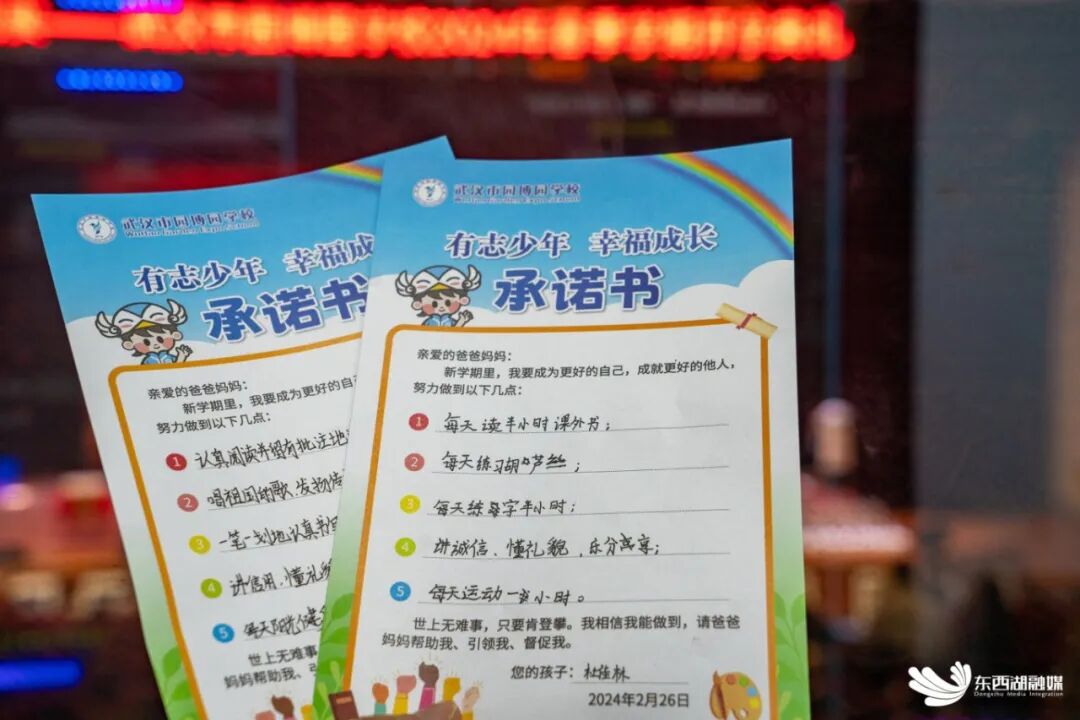 武汉市园博园学校
Wuhan Garden Expo School
有志少年 幸福成
承诺书
亲爱的爸爸妈妈：
新学期里，我要成为更好的自
努力做到以下几点：
1 认真阅读并留有批注地
2 唱祖国的歌,发扬传
3 一笔一划地认真书
4 讲信用,懂礼貌
5 每天阳光健
世上无难事
妈妈帮助我、引
武汉市园博园学校
Wuhan Garden Expo School
有志少年 幸福成长
承诺书
亲爱的爸爸妈妈：
新学期里，我要成为更好的自己，成就更好的他人，
努力做到以下几点：
1 每天读半小时课外书；
2 每天练习葫芦丝；
3 每天练字半小时；
4 讲诚信、懂礼貌，乐分享；
5 每天运动一小时。
世上无难事，只要肯登攀。我相信我能做到，请爸爸
妈妈帮助我、引领我、督促我。
您的孩子：杜佳林
2024年2月26日
东西湖融媒
Dongxihu Media Integration